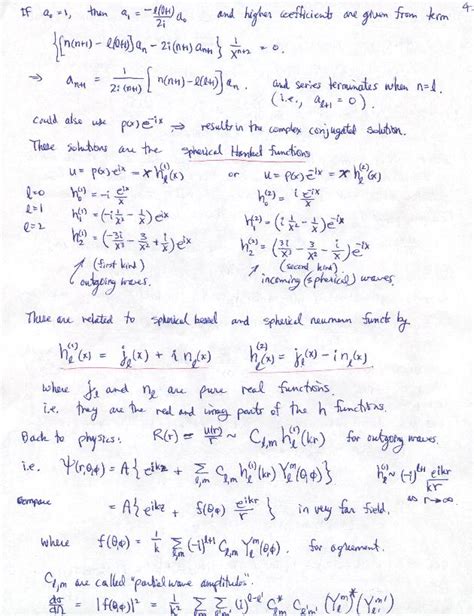 4.
If a₀=1, then a₁ = -l(l+1)/2i a₀ and higher coefficients are given from term
{[n(n+1) - l(l+1)]aₙ - 2i(n+1)aₙ₊₁} 1/xⁿ⁺² = 0.
⇒ aₙ₊₁ = 1/2i(n+1) [n(n+1) - l(l+1)] aₙ. and series terminates when n=l.
(i.e., a_{l+1} = 0).
could also use p(x)e^{-ix} ⇒ results in the complex conjugated solution.
These solutions are the spherical Hankel functions
u = p(x)e^{ix} = x h_l^{(1)}(x) or u = p(x)e^{-ix} = x h_l^{(2)}(x)
l=0 h₀^{(1)} = -i e^{ix}/x h₀^{(2)} = i e^{-ix}/x
l=1 h₁^{(1)} = (-i 1/x² - 1/x) e^{ix} h₁^{(2)} = (i 1/x² - 1/x) e^{-ix}
l=2 h₂^{(1)} = (-3i/x³ - 3/x² + i/x) e^{ix} h₂^{(2)} = (3i/x³ - 3/x² - i/x) e^{-ix}
(first kind) (second kind)
outgoing waves. incoming (spherical) waves.
These are related to spherical bessel and spherical neumann functs by
h_l^{(1)}(x) = j_l(x) + i n_l(x) h_l^{(2)}(x) = j_l(x) - i n_l(x)
where j_l and n_l are pure real functions.
i.e. they are the real and imag parts of the h functions.
Back to physics: R(r) = u(r)/r ~ C_{l,m} h_l^{(1)}(kr) for outgoing waves.
i.e. Ψ(r,θ,φ) = A{e^{ikz} + Σ_{l,m} C_{l,m} h_l^{(1)}(kr) Y_l^m(θ,φ)} h_l^{(1)} ~ (-i)^{l+1} e^{ikr}/kr
as r→∞.
Compare = A{e^{ikz} + f(θ,φ) e^{ikr}/r} in very far field.
where f(θ,φ) = 1/k Σ_{l,m} (-i)^{l+1} C_{l,m} Y_l^m(θ,φ). for agreement.
C_{l,m} are called "partial wave amplitudes".
dσ/dΩ = |f(θ,φ)|² =